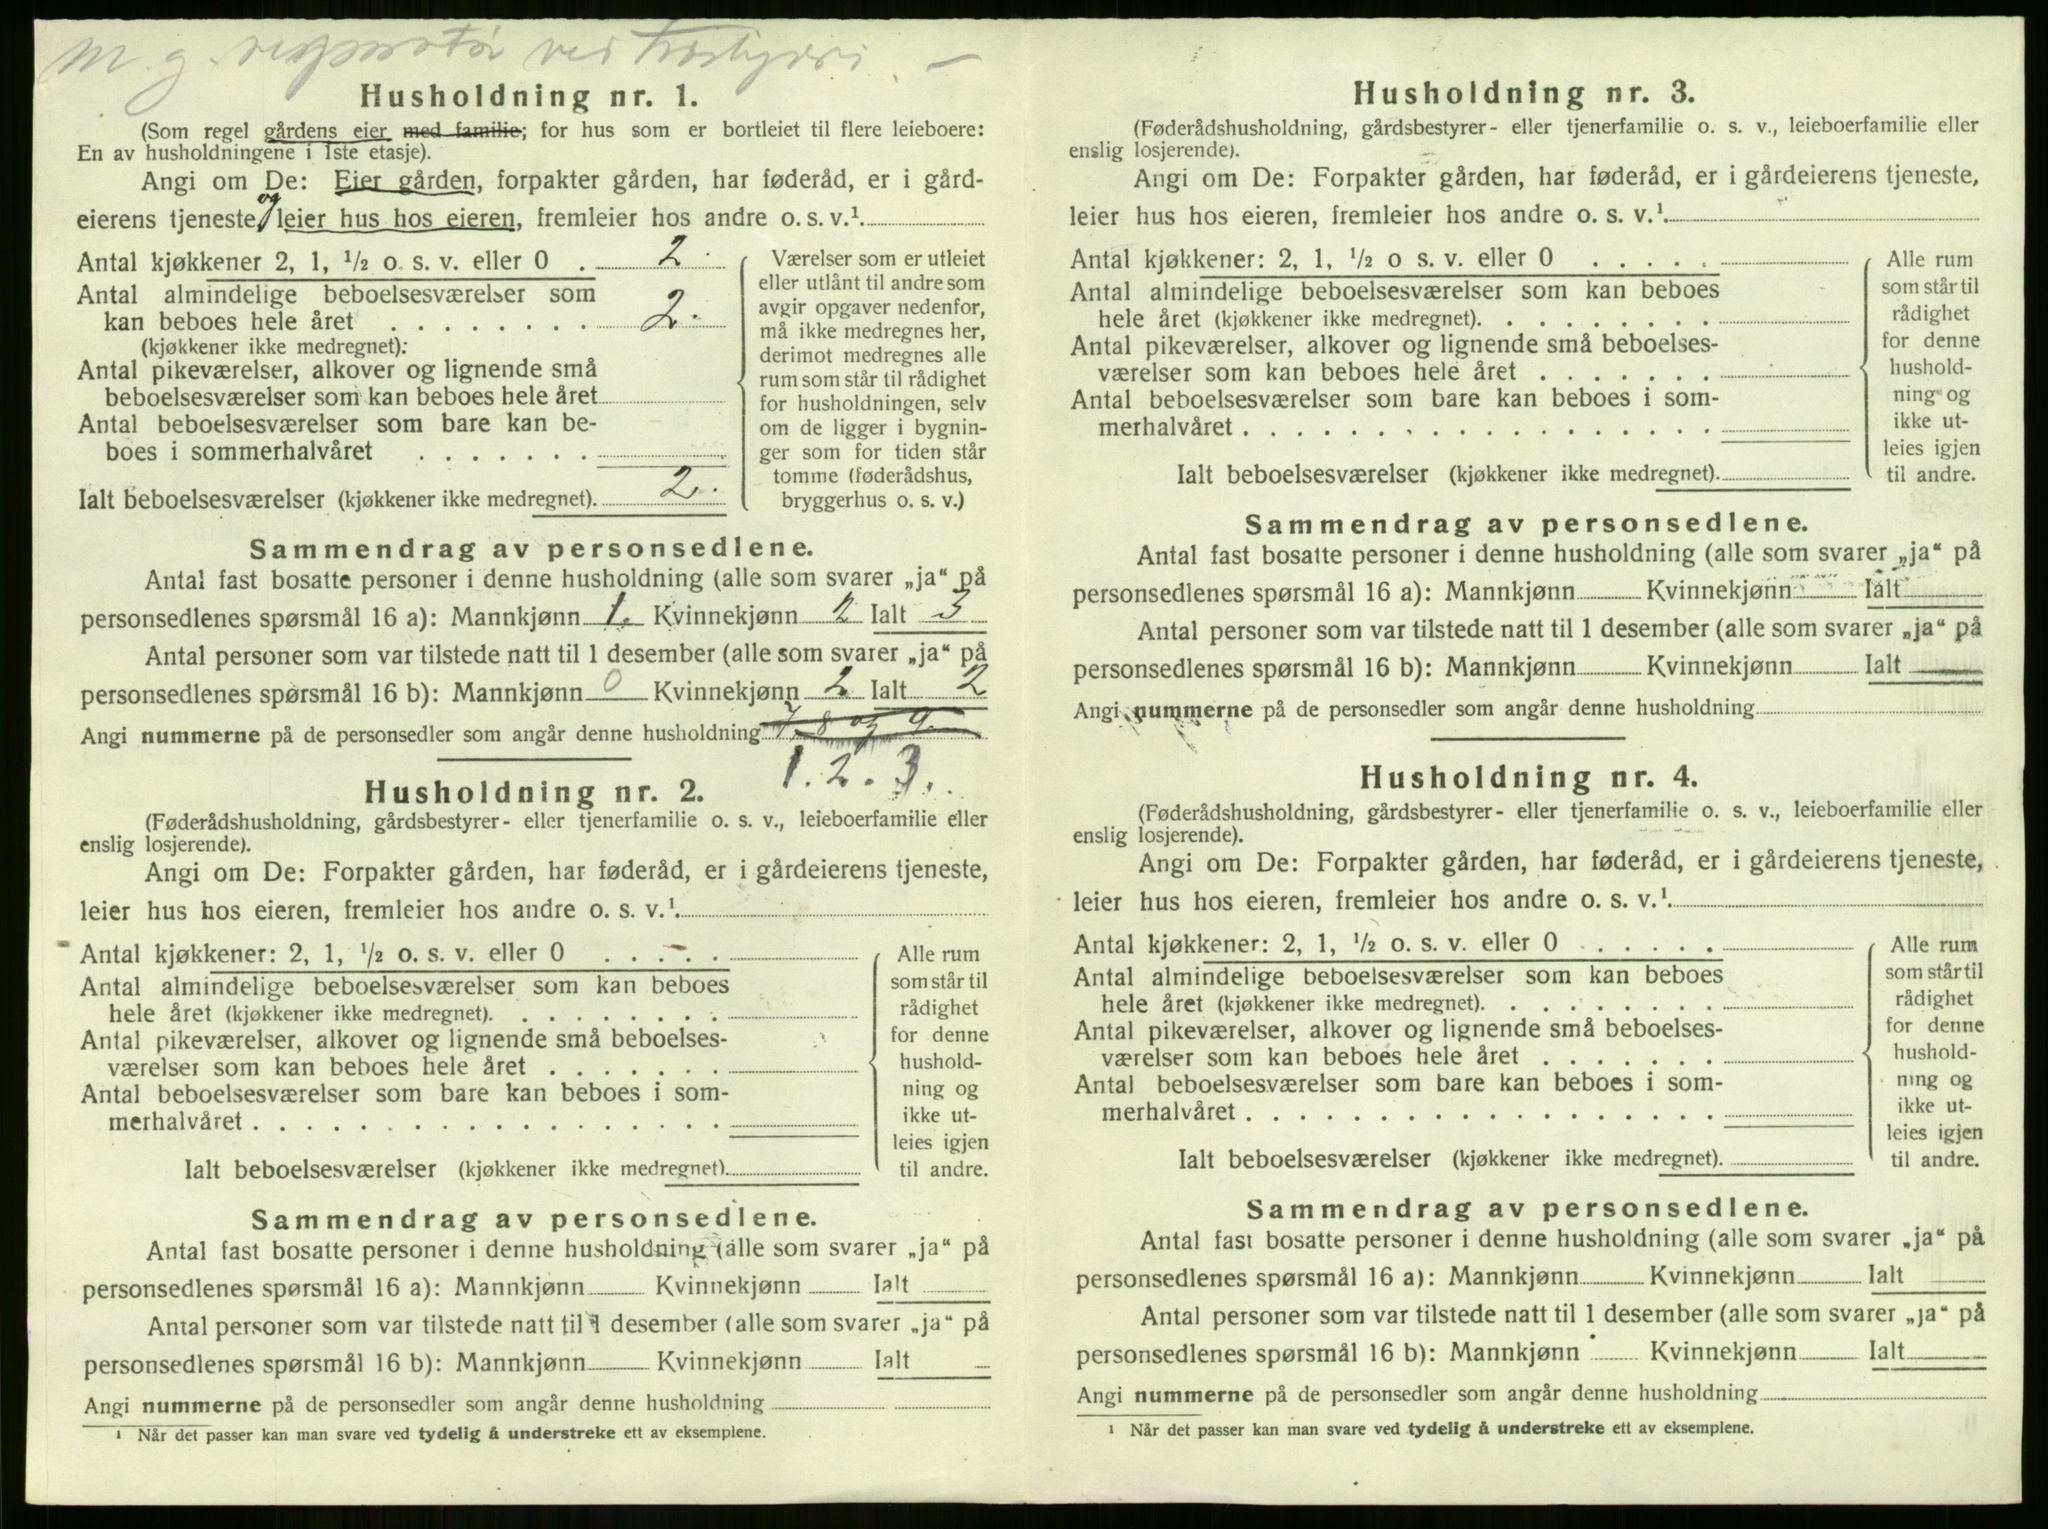 Husholdning nr. 1.
(Som regel gårdens eier med familie; for hus som er bortleiet til flere leieboere:
En av husholdningene i 1ste etasje).
Angi om De: Eier gården, forpakter gården, har føderåd, er i gård-
eierens tjeneste og leier hus hos eieren, fremleier hos andre o. s. v.¹
Antal kjøkkener 2, 1, ½ o. s. v. eller 0 . 2.
Antal almindelige beboelsesværelser som
kan beboes hele året . . . . . . . . 2.
(kjøkkener ikke medregnet):
Antal pikeværelser, alkover og lignende små
beboelsesværelser som kan beboes hele året
Antal beboelsesværelser som bare kan be-
boes i sommerhalvåret . . . . . . .
Ialt beboelsesværelser (kjøkkener ikke medregnet). 2.
Værelser som er utleiet
eller utlånt til andre som
avgir opgaver nedenfor,
må ikke medregnes her,
derimot medregnes alle
rum som står til rådighet
for husholdningen, selv
om de ligger i bygnin-
ger som for tiden står
tomme (føderådshus,
bryggerhus o. s. v.)
Sammendrag av personsedlene.
Antal fast bosatte personer i denne husholdning (alle som svarer „ja“ på
personsedlenes spørsmål 16 a): Mannkjønn 1. Kvinnekjønn 2 Ialt 3
Antal personer som var tilstede natt til 1 desember (alle som svarer „ja“ på
personsedlenes spørsmål 16 b): Mannkjønn 0 Kvinnekjønn 2 Ialt 2
Angi nummerne på de personsedler som angår denne husholdning 7, 8 og 9.
1. 2. 3.
Husholdning nr. 2.
(Føderådshusholdning, gårdsbestyrer- eller tjenerfamilie o. s. v., leieboerfamilie eller
enslig losjerende).
Angi om De: Forpakter gården, har føderåd, er i gårdeierens tjeneste,
leier hus hos eieren, fremleier hos andre o. s. v.¹
Antal kjøkkener: 2, 1, ½ o. s. v. eller 0 . . . . .
Antal almindelige beboelsesværelser som kan beboes
hele året (kjøkkener ikke medregnet). . . . . . . . .
Antal pikeværelser, alkover og lignende små beboelses-
værelser som kan beboes hele året . . . . . . .
Antal beboelsesværelser som bare kan beboes i som-
merhalvåret . . . . . . . . . . . . . . . . . .
Ialt beboelsesværelser (kjøkkener ikke medregnet).
Alle rum
som står til
rådighet
for denne
hushold-
ning og
ikke ut-
leies igjen
til andre.
Sammendrag av personsedlene.
Antal fast bosatte personer i denne husholdning (alle som svarer „ja“ på
personsedlenes spørsmål 16 a): Mannkjønn Kvinnekjønn Ialt
Antal personer som var tilstede natt til 1 desember (alle som svarer „ja“ på
personsedlenes spørsmål 16 b): Mannkjønn Kvinnekjønn Ialt
Angi nummerne på de personsedler som angår denne husholdning
¹ Når det passer kan man svare ved tydelig å understreke ett av eksemplene.
Husholdning nr. 3.
(Føderådshusholdning, gårdsbestyrer- eller tjenerfamilie o. s. v., leieboerfamilie eller
enslig losjerende).
Angi om De: Forpakter gården, har føderåd, er i gårdeierens tjeneste,
leier hus hos eieren, fremleier hos andre o. s. v.¹
Antal kjøkkener: 2, 1, ½ o s. v. eller 0 . . . . .
Antal almindelige beboelsesværelser som kan beboes
hele året (kjøkkener ikke medregnet). . . . . . . . .
Antal pikeværelser, alkover og lignende små beboelses-
værelser som kan beboes hele året . . . . . . .
Antal beboelsesværelser som bare kan beboes i som-
merhalvåret . . . . . . . . . . . . . . . . . .
Ialt beboelsesværelser (kjøkkener ikke medregnet).
Alle rum
som står til
rådighet
for denne
hushold-
ning og
ikke ut-
leies igjen
til andre.
Sammendrag av personsedlene.
Antal fast bosatte personer i denne husholdning (alle som svarer „ja“ på
personsedlenes spørsmål 16 a): Mannkjønn Kvinnekjønn Ialt
Antal personer som var tilstede natt til 1 desember (alle som svarer „ja“ på
personsedlenes spørsmål 16 b): Mannkjønn Kvinnekjønn Ialt
Angi nummerne på de personsedler som angår denne husholdning
Husholdning nr. 4.
(Føderådshusholdning, gårdsbestyrer- eller tjenerfamilie o. s. v., leieboerfamilie eller
enslig losjerende).
Angi om De: Forpakter gården, har føderåd, er i gårdeierens tjeneste,
leier hus hos eieren, fremleier hos andre o. s. v.¹
Antal kjøkkener: 2, 1, ½ o. s. v. eller 0 . . . . .
Antal almindelige beboelsesværelser som kan beboes
hele året (kjøkkener ikke medregnet). . . . . . . . .
Antal pikeværelser, alkover og lignende små beboelses-
værelser som kan beboes hele året . . . . . . .
Antal beboelsesværelser som bare kan beboes i som-
merhalvåret . . . . . . . . . . . . . . . . . .
Ialt beboelsesværelser (kjøkkener ikke medregnet).
Alle rum
som står til
rådighet
for denne
hushold-
ning og
ikke ut-
leies igjen
til andre.
Sammendrag av personsedlene.
Antal fast bosatte personer i denne husholdning (alle som svarer „ja“ på
personsedlenes spørsmål 16 a): Mannkjønn Kvinnekjønn Ialt
Antal personer som var tilstede natt til 1 desember (alle som svarer „ja“ på
personsedlenes spørsmål 16 b): Mannkjønn Kvinnekjønn Ialt
Angi nummerne på de personsedler som angår denne husholdning
¹ Når det passer kan man svare ved tydelig å understreke ett av eksemplene.